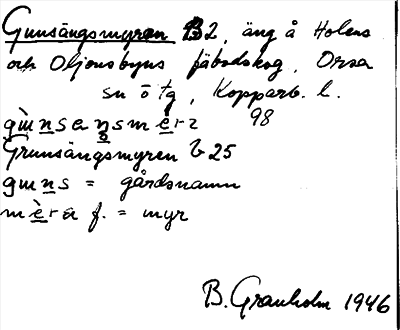 Gunsängsmyren B2, äng å Holens
och Oljonsbyns fäbodskog, Orsa
sn ö tg, Kopparb. l.
98
Grunsängsmyren b 25
guns = gårdsnamn
mèra f. = myr
B. Granholm 1946